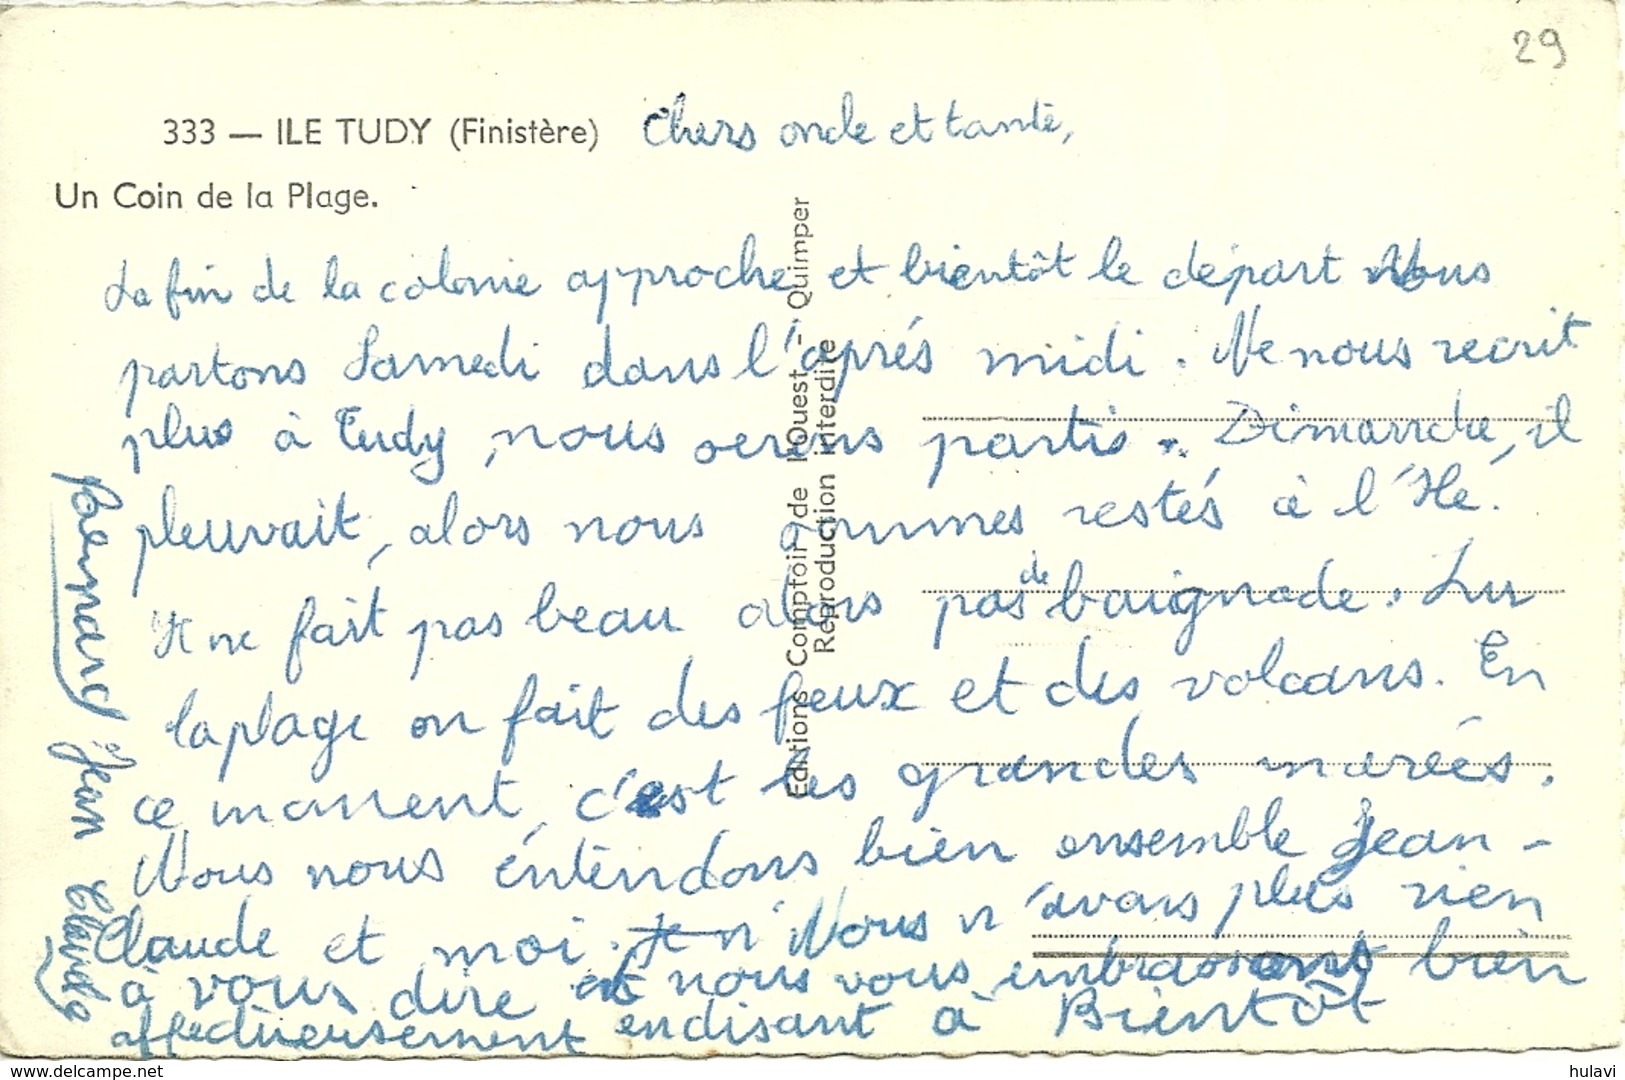 29
333 — ILE TUDY (Finistère) Chers oncle et tante,
Un Coin de la Plage.
La fin de la colonie approche et bientôt le départ Nous
partons Samedi dans l'aprés midi. Ne nous recrit
plus à Tudy, nous serons partis. Dimanche, il
pleuvait, alors nous sommes restés à l'Ile.
Il ne fait pas beau alors pas de baignade. Sur
la plage on fait des feux et des volcans. En
ce moment, c'est les grandes marées.
Nous nous entendons bien ensemble Jean-
Claude et moi. Je n' Nous n'avons plus rien
à vous dire et nous vous embrassons bien
affectueusement en disant à Bientôt
Bernard Jean Claude
Editions Comptoir de l'Ouest - Quimper
Reproduction interdite
www.delcampe.net
hulavi